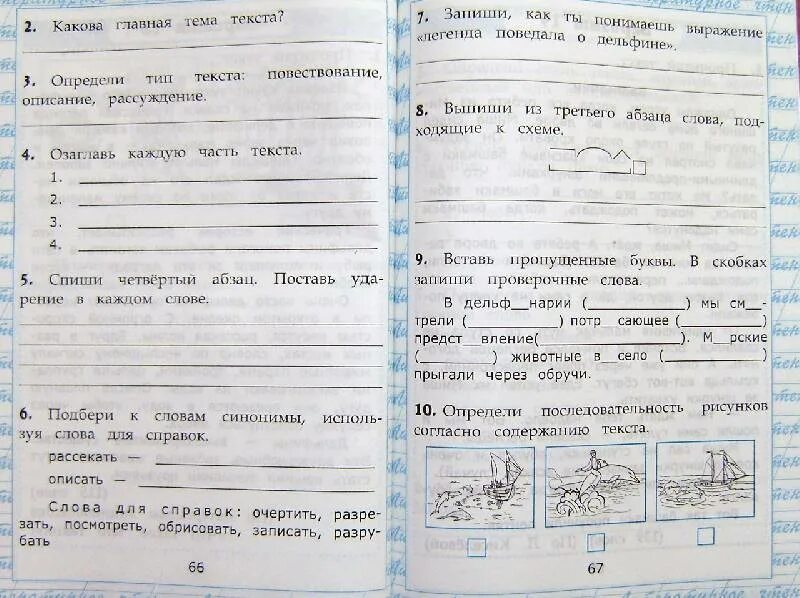 2. Какова главная тема текста?
3. Определи тип текста: повествование,
описание, рассуждение.
4. Озаглавь каждую часть текста.
1.
2.
3.
4.
5. Спиши четвёртый абзац. Поставь уда-
рение в каждом слове.
6. Подбери к словам синонимы, исполь-
зуя слова для справок.
рассекать —
описать —
Слова для справок: очертить, разре-
зать, посмотреть, обрисовать, записать, разру-
бать
66
7. Запиши, как ты понимаешь выражение
«легенда поведала о дельфине».
8. Выпиши из третьего абзаца слова, под-
ходящие к схеме.
9. Вставь пропущенные буквы. В скобках
запиши проверочные слова.
В дельф__нарии (__________) мы см__-
трели (__________) потр__сающее (_________)
предст__вление(______________). М__рские
(________) животные в__село (__________)
прыгали через обручи.
10. Определи последовательность рисунков
согласно содержанию текста.
67